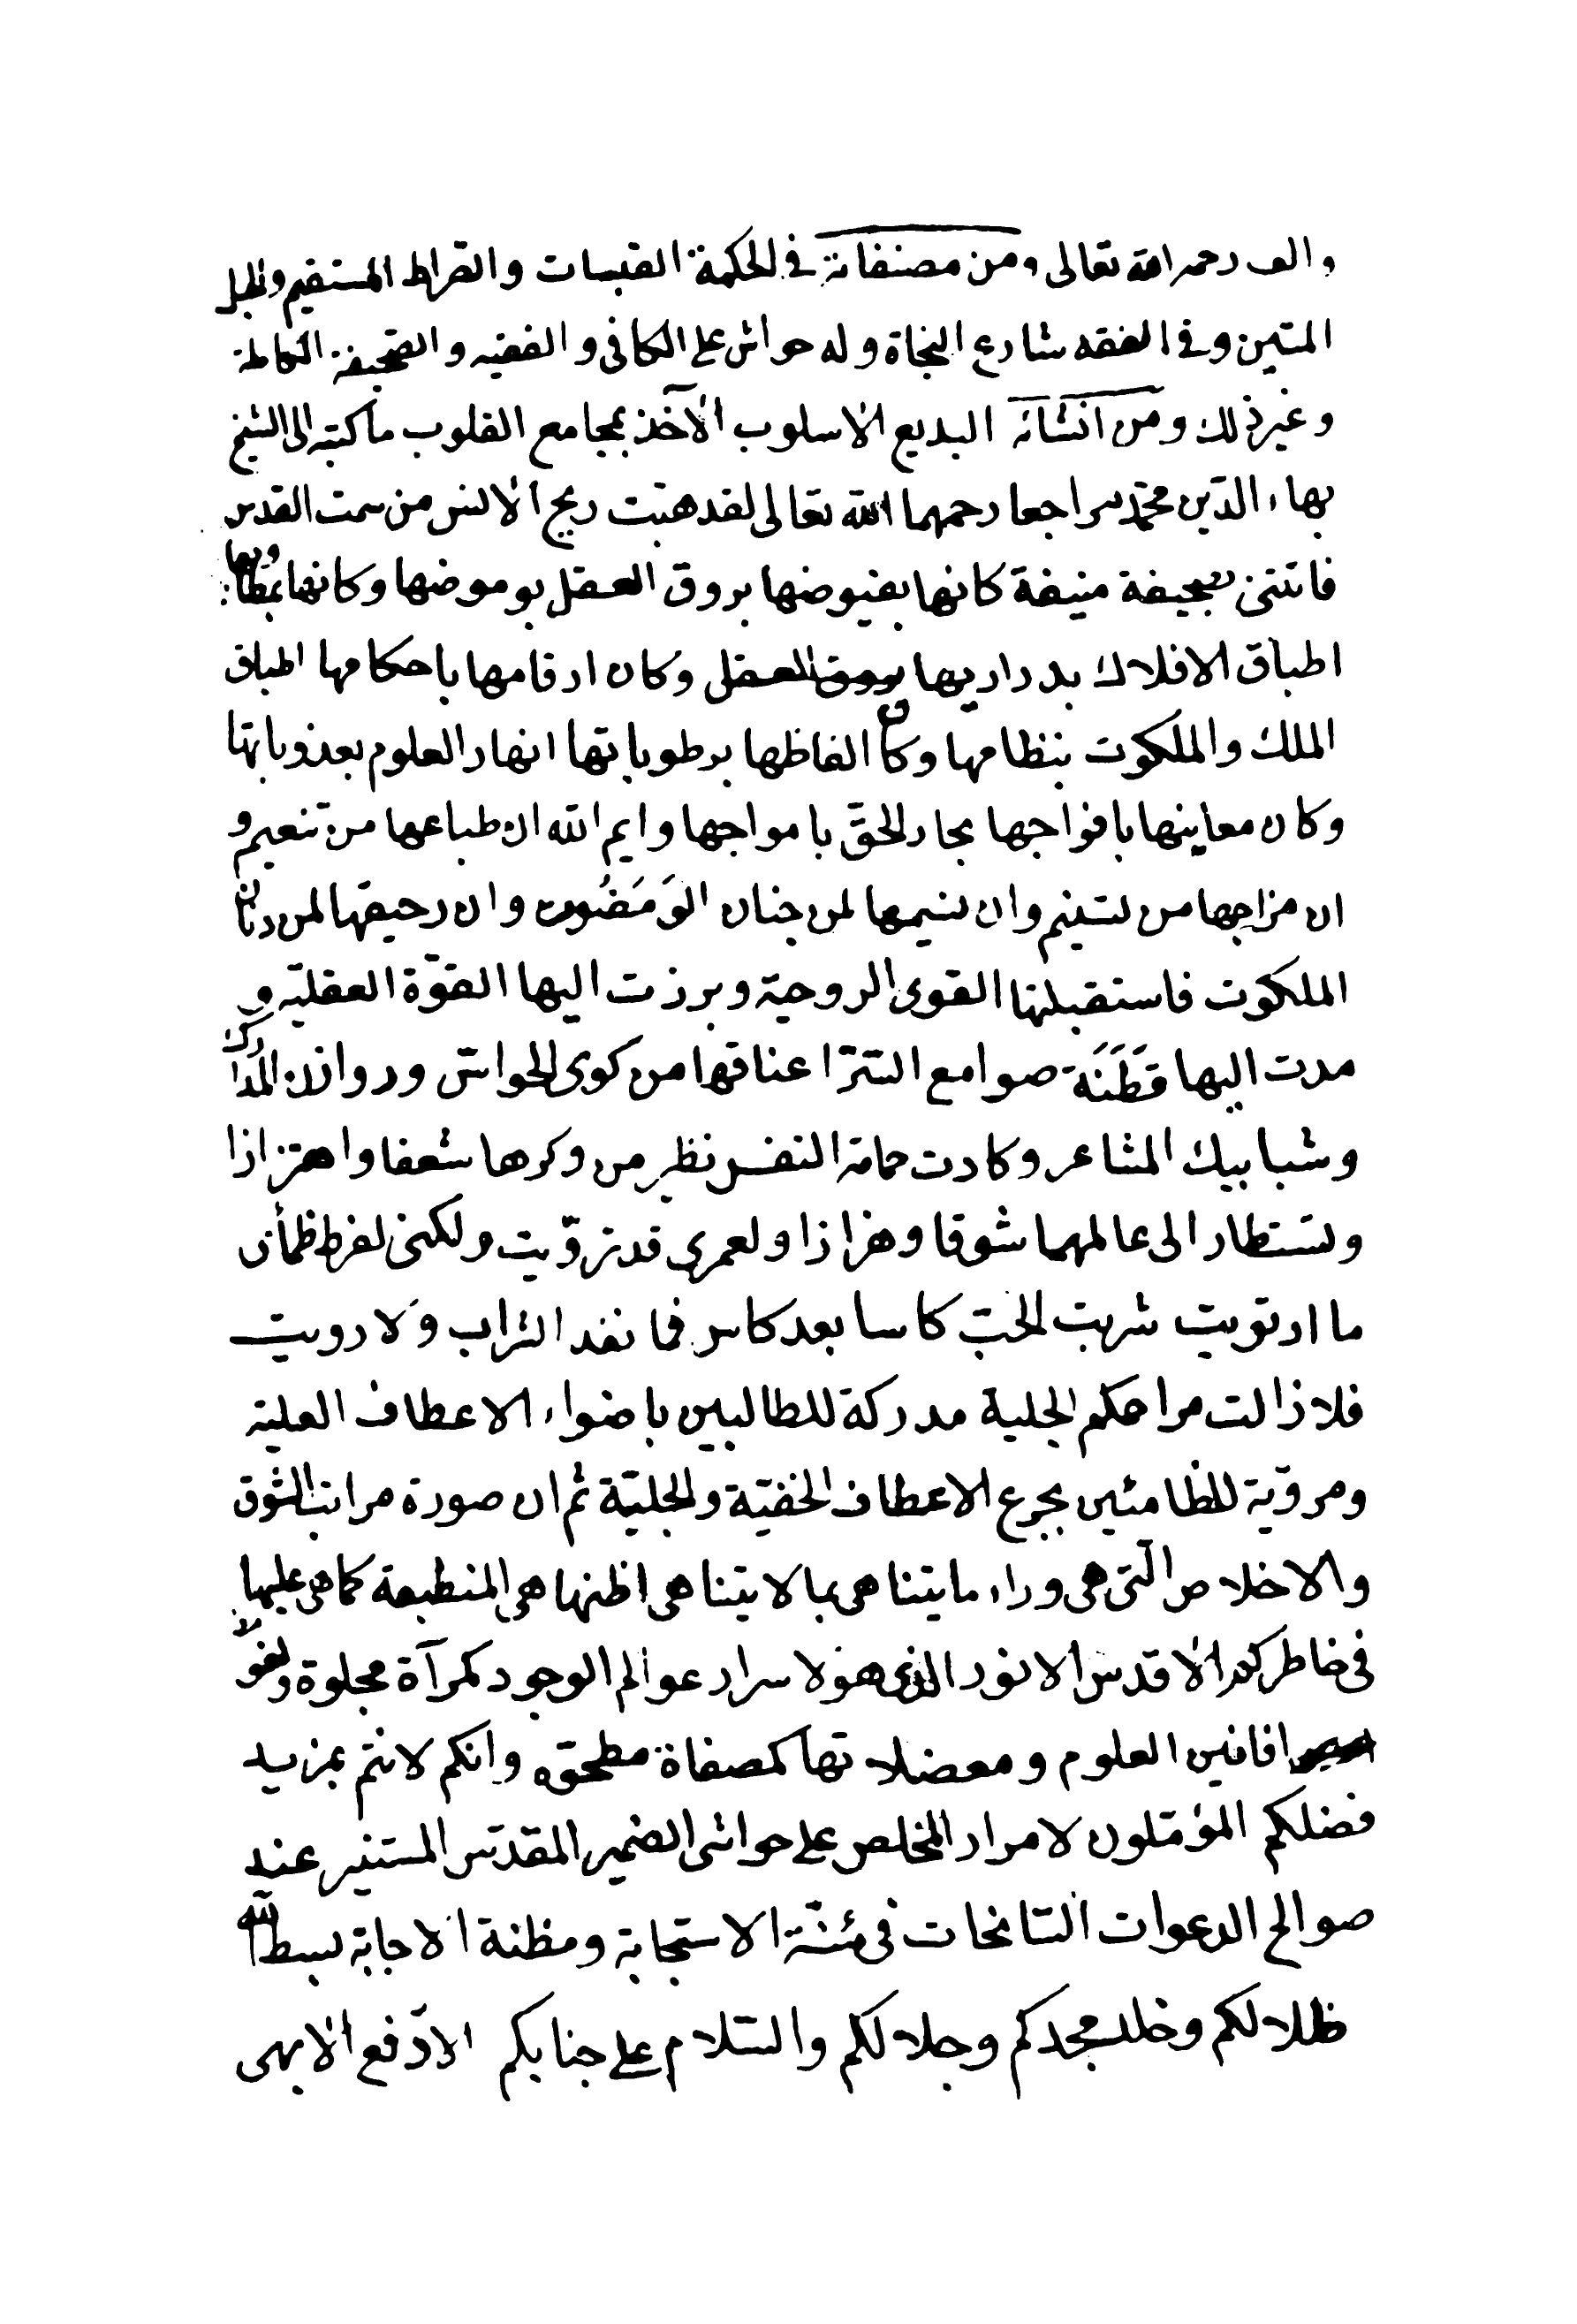 والف رحمه الله تعالى ومن مصنفاته في الحكمة القبسات والصراط المستقيم والحبل
المتين وفي الفقه شارع النجاة وله حواش على الكافي والفقيه والصحيفة الكاملة
وغير ذلك ومن انشائه البديع الاسلوب الآخذ بمجامع القلوب ما كتبه الى الشيخ
بهاء الدين محمد مراجعا رحمهما الله تعالى لقد هبت ريح الانس من سمت القدس
فاتتنى بصحيفة منيفة كانها بفيوضها بروق العقل بوموضها وكانها بمطاويها
اطباق الافلاك بدراريها وكان ارقامها باحكامها اطباق
الملك والملكوت بنظامها وكان الفاظها برطوباتها انهار العلوم بعذوباتها
وكان معاينها بافواجها بحار الحق بامواجها وايم الله ان طباعها من تنعيم و
ان مزاجها من تسنيم وان نسيمها لمن جنان الومضوت وان رحيقها لمن دنان
الملكوت فاستقبلتها القوى الروحية وبرزت اليها القوة العقلية و
مدت اليها قَطَنَة صوامع السر اعناقها من كوى الحواس وروازن المدارك
وشبابيك المشاعر وكادت حمامة النفس تطير من وكرها شعفا واهتزازا
وتستطار الى عالمهما شوقا وهزازا ولعمرى قد ترويت ولكنى لفرط ظمأن
ما ارتويت شربت الحب كاسا بعد كاس فما نفد الشراب ولا رويت
فلا زالت مراحمكم الجلية مدركة للطالبين باضواء الاعطاف العلية
ومروية للظامئين بجرع الاعطاف الخفية والجلية ثم ان صورة مراتب الشوق
والاخلاص التى هى وراء ما يتناهى بما لا يتناهى اظنها هى المنطبعة كما هى عليها
فى خاطركم الاقدس الانور الذى هو لاسرار عوالم الوجود كمرآة مجلوة ولغوا
افانين العلوم ومعضلاتها كمصفاة مطحوة وانكم لانتم بمزيد
فضلكم المؤملون لامرار المخلص على حواشى الضمير المقدس المستنير عند
صوالح الدعوات السانحات فى مئنة الاستجابة ومظنة الاجابة بسط الله
ظلالكم وخلد مجدكم وجلالكم والسلام على جنابكم الارفع الابهى